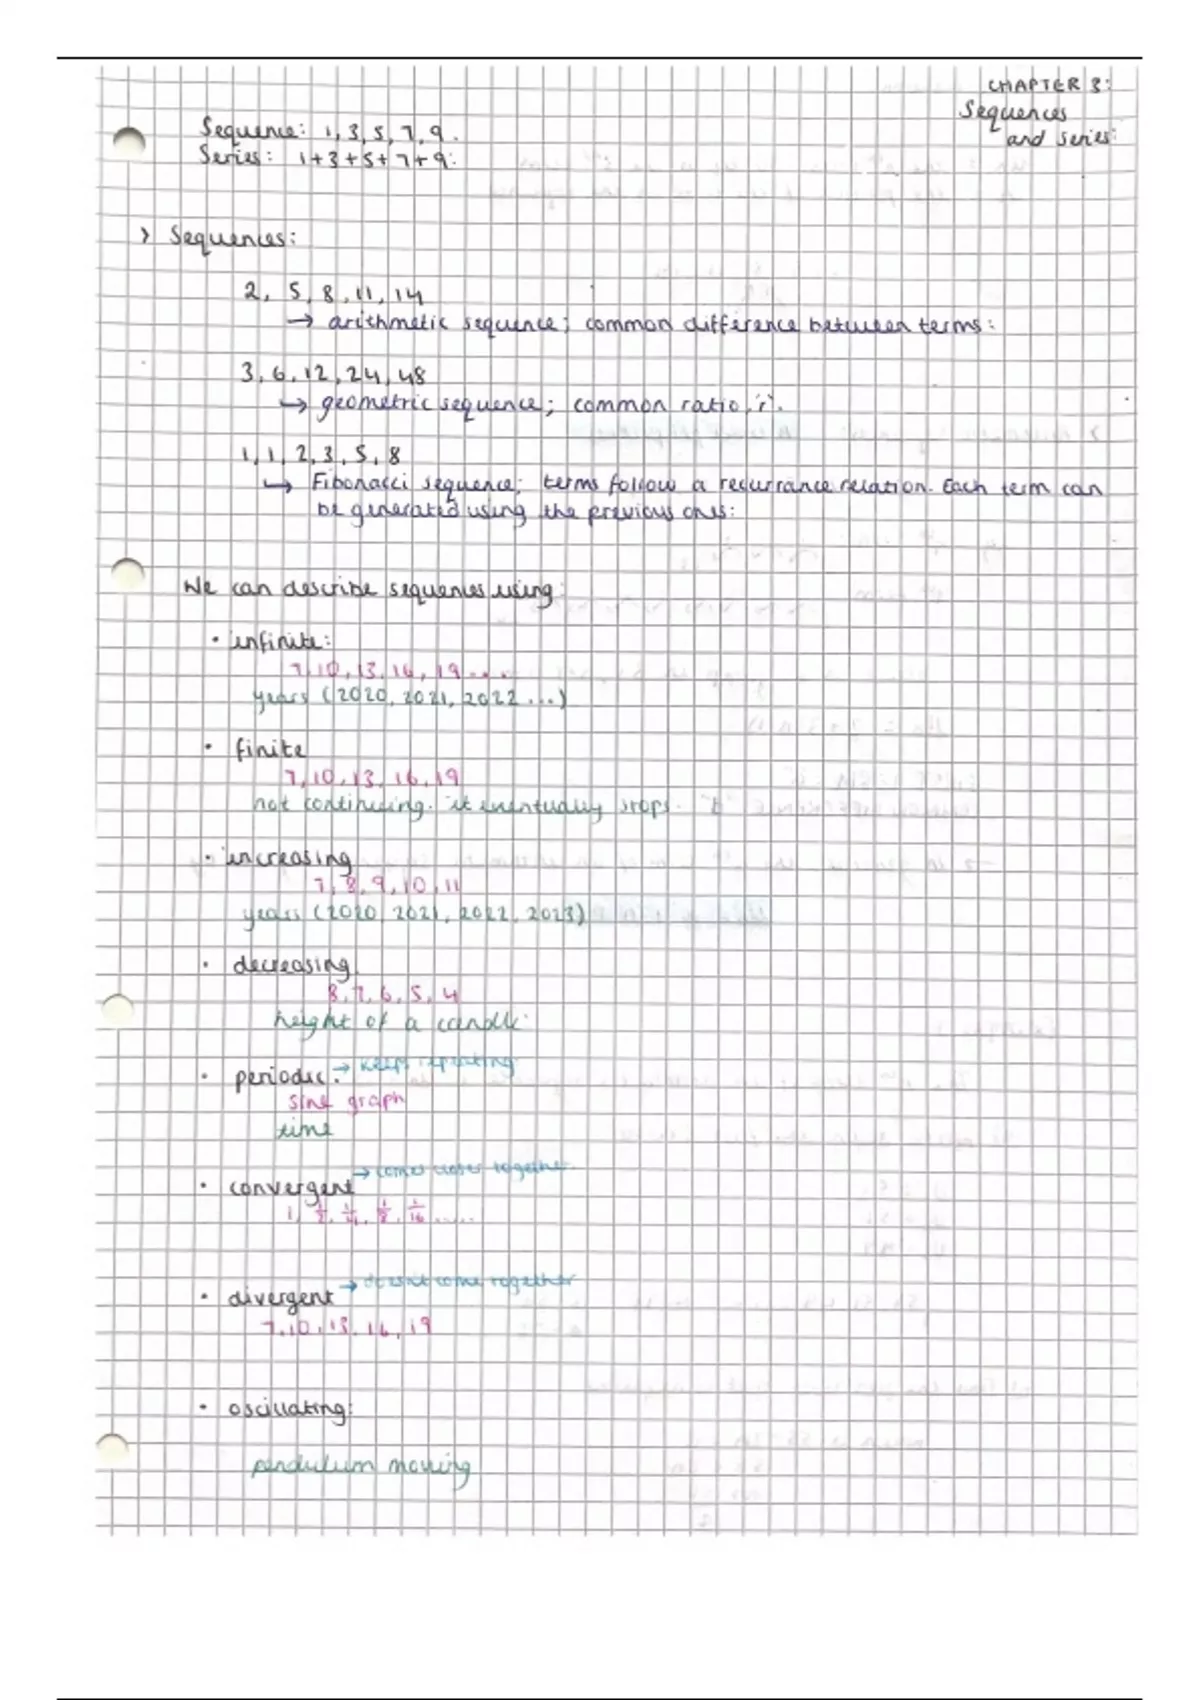 CHAPTER 3:
Sequences
and series:
Sequence: 1, 3, 5, 7, 9.
Series: 1+3+5+7+9.
> Sequences:
2, 5, 8, 11, 14
→ arithmetic sequence; common difference between terms:
3, 6, 12, 24, 48
→ geometric sequence; common ratio, r.
1, 1, 2, 3, 5, 8
→ Fibonacci sequence; terms follow a recurrance relation. Each term can
be generated using the previous ones:
We can describe sequences using:
• infinite:
7, 10, 13, 16, 19....
years (2020, 2021, 2022...)
• finite
7, 10, 13, 16, 19
not continuing. it eventually stops.
• increasing
7, 8, 9, 10, 11
years (2020, 2021, 2022, 2023)
• decreasing.
8, 7, 6, 5, 4
height of a candle.
• periodic. → keeps repeating
sine graph
time
• convergent → comes closer together.
1, 1/2, 1/4, 1/8, 1/16 .....
• divergent → doesn't come together
7, 10, 13, 16, 19
• oscillating:
pendulum moving